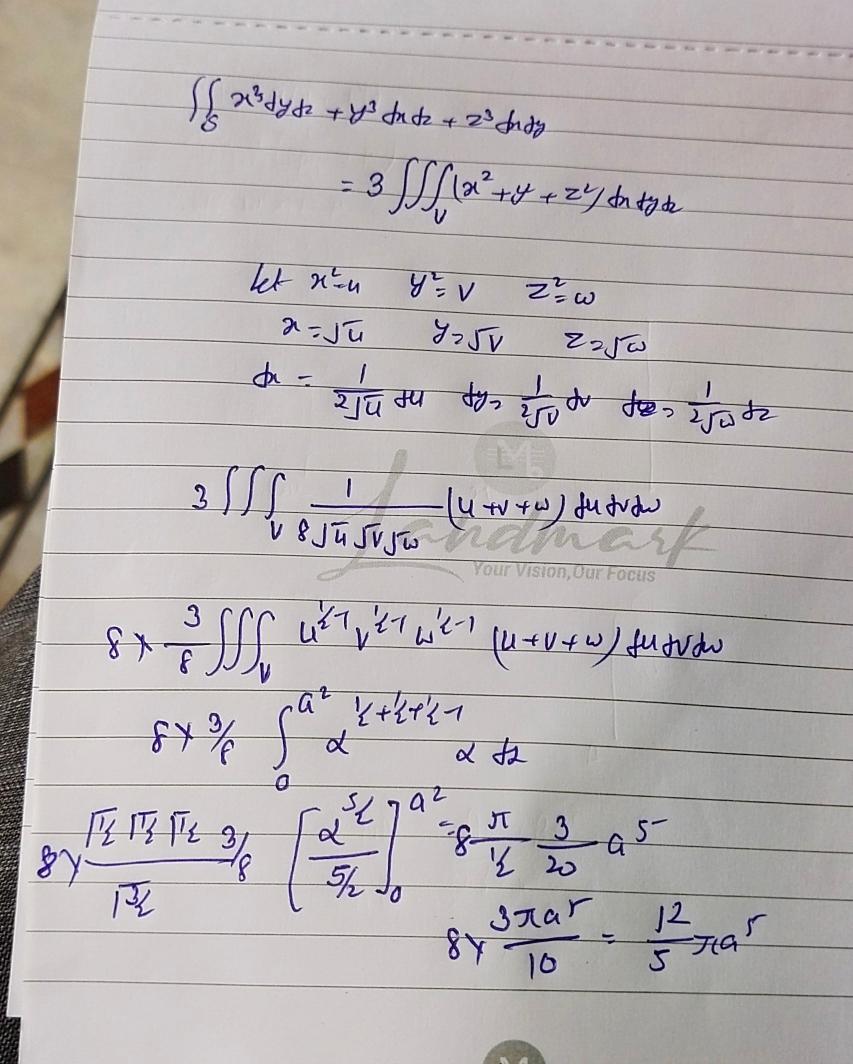 ∬_S x³dydz + y³ dxdz + z³ dxdy
= 3 ∭_V (x² + y + z²) dxdydz
let x² = u y² = v z² = w
x = √u y = √v z = √w
dx = 1/(2√u) du dy = 1/(2√v) dv dz = 1/(2√w) dz
3 ∭_V 1/(8√u √v √w) (u+v+w) dudvdw
Landmark
Your Vision,Our Focus
8 × 3/8 ∭_V u^(½-1) v^(½-1) w^(½-1) (u+v+w) dudvdw
8 × 3/8 ∫_0^(a²) α^(½+½+½-1) α dα
8 × (Γ½ Γ½ Γ½)/(Γ3/2) 3/8 [α^(5/2)/(5/2)]_0^(a²) = 8 π/(½) 3/20 a⁵
8 × 3πa⁵/10 = 12/5 πa⁵